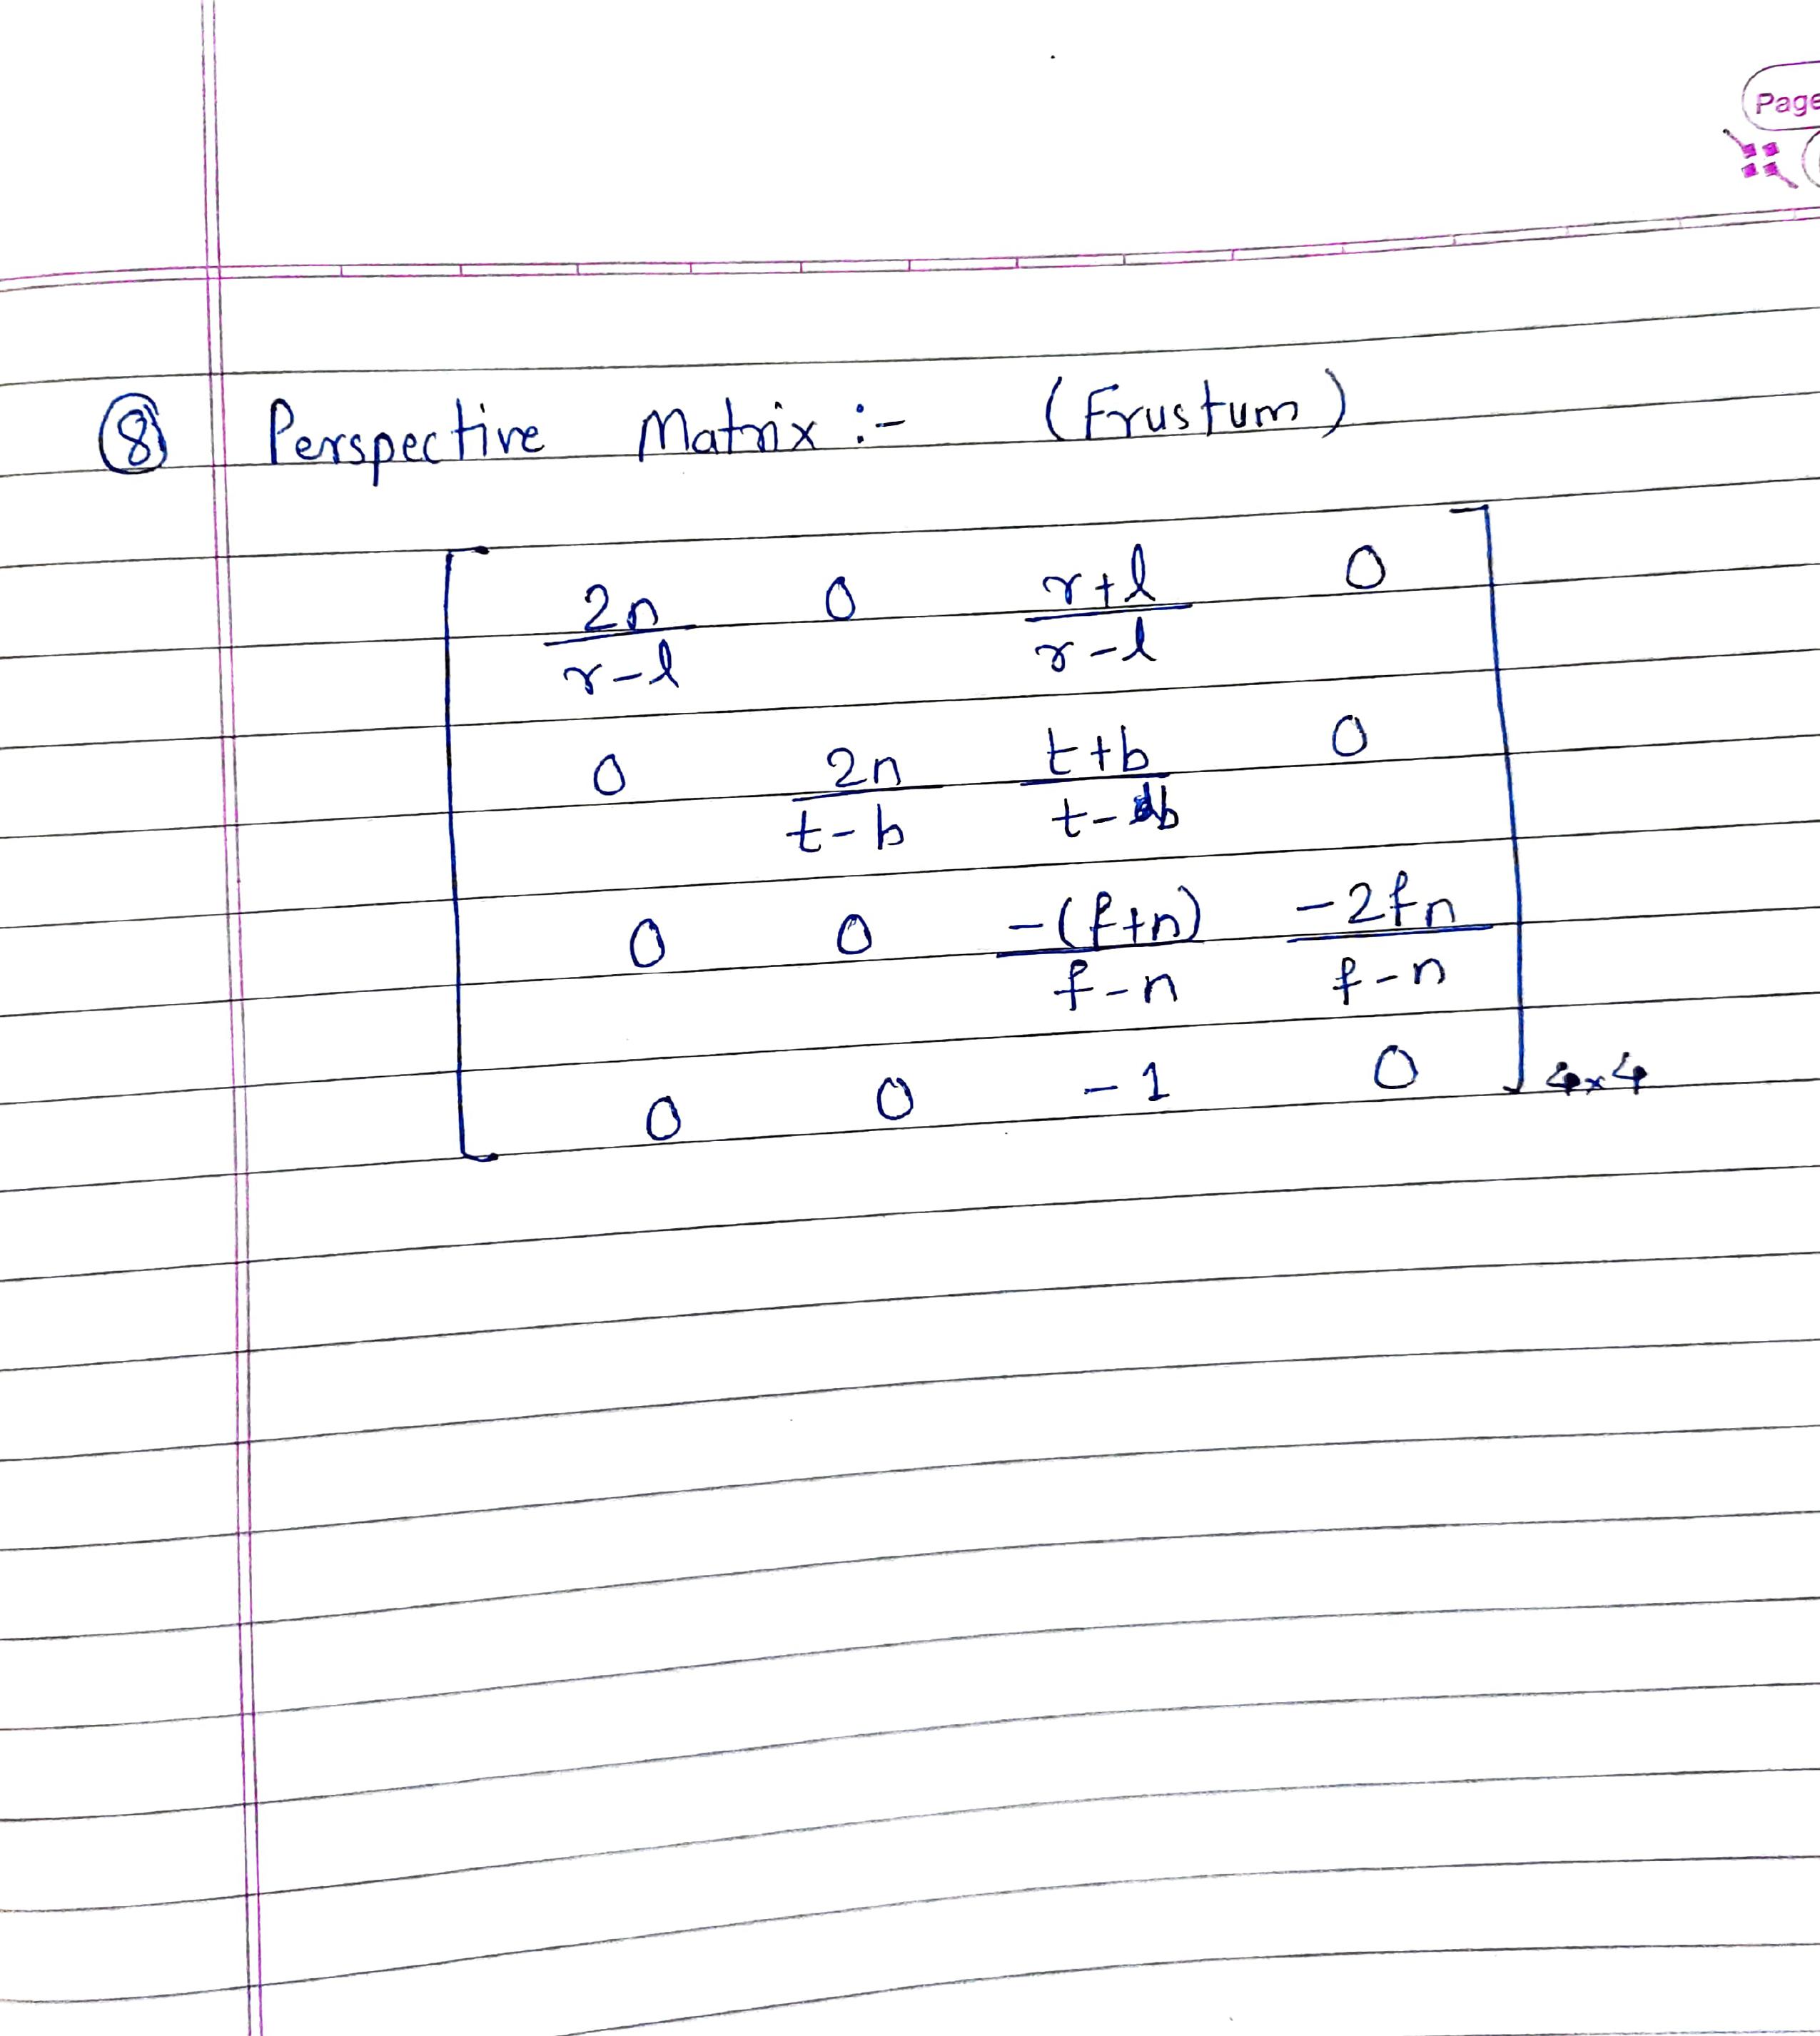 Page
⑧ Perspective Matrix :- (Frustum)
2n/r-l 0 r+l/r-l 0
0 2n/t-b t+b/t-b 0
0 0 -(f+n)/f-n -2fn/f-n
0 0 -1 0 4×4